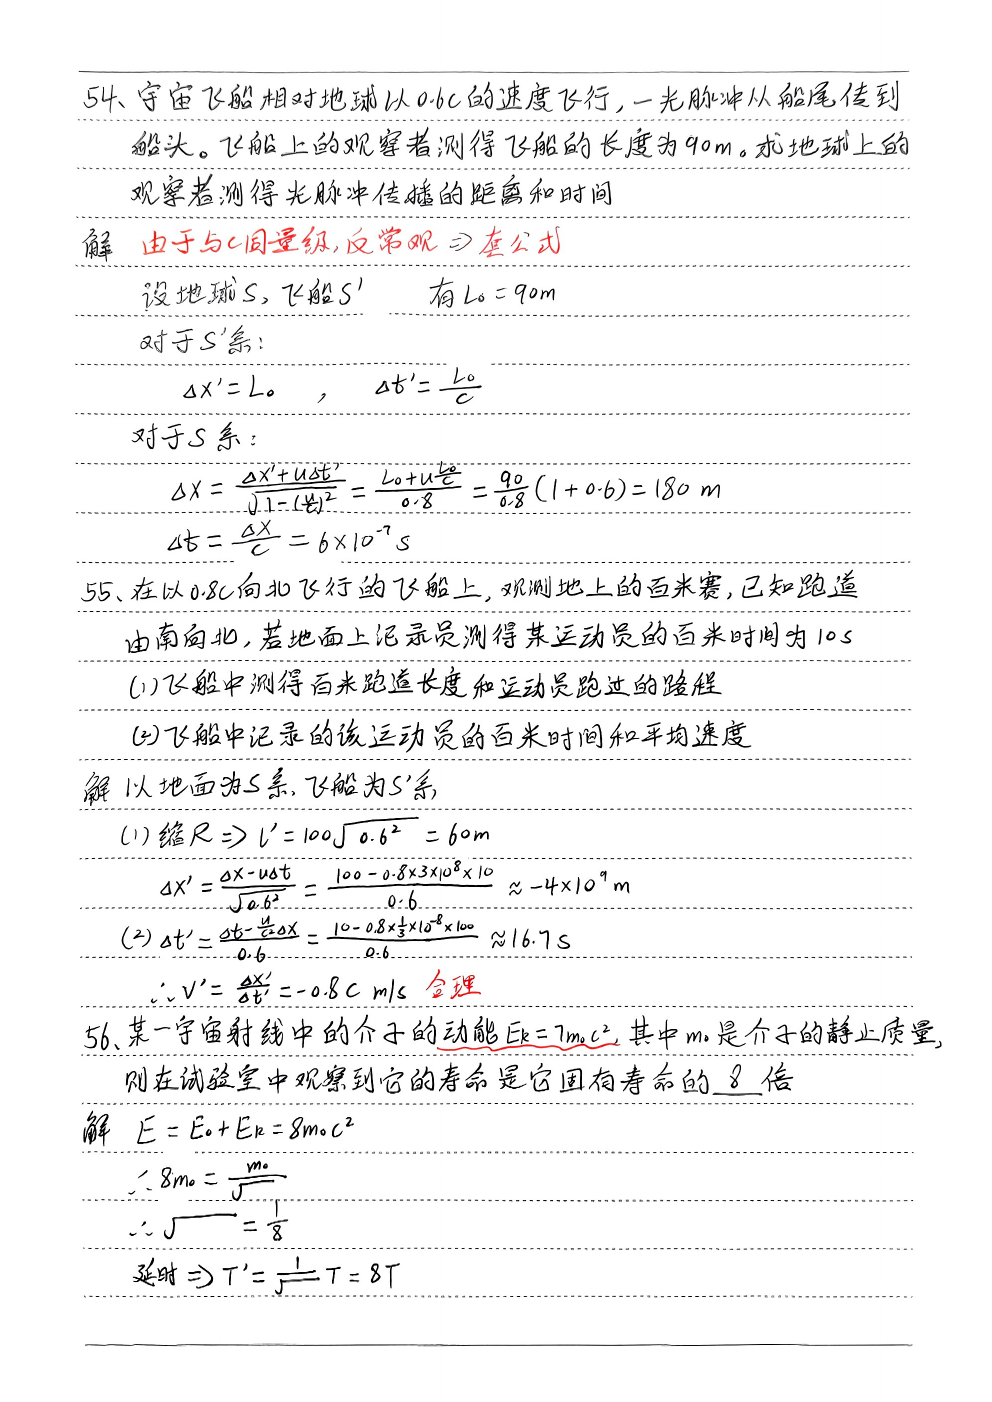 54、宇宙飞船相对地球以0.6C的速度飞行，一光脉冲从船尾传到
船头。飞船上的观察者测得飞船的长度为90m。求地球上的
观察者测得光脉冲传播的距离和时间
解 由于与C同量级，反常观⇒套公式
设地球S，飞船S' 有L₀=90m
对于S'系：
Δx'=L₀ ， Δt'=L₀/C
对于S系：
Δx=(Δx'+uΔt')/√(1-(u/c)²)=(L₀+u L₀/C)/0.8=90/0.8(1+0.6)=180 m
Δt=Δx/C=6×10⁻⁷s
55、在以0.8C向北飞行的飞船上，观测地上的百米赛，已知跑道
由南向北，若地面上记录员测得某运动员的百米时间为10s
(1)飞船中测得百米跑道长度和运动员跑过的路程
(2)飞船中记录的该运动员的百米时间和平均速度
解 以地面为S系、飞船为S'系
(1)缩尺⇒l'=100√0.6²=60m
Δx'=(Δx-uΔt)/√0.6²=(100-0.8×3×10⁸×10)/0.6≈-4×10⁹m
(2)Δt'=(Δt-u/c²Δx)/0.6=(10-0.8×1/3×10⁻⁸×100)/0.6≈16.7s
∴V'=Δx'/Δt'=-0.8C m/s 合理
56、某一宇宙射线中的介子的动能Eₖ=7m₀c²，其中m₀是介子的静止质量，
则在试验室中观察到它的寿命是它固有寿命的 8 倍
解 E=E₀+Eₖ=8m₀c²
∴8m₀=m₀/√
∴√ =1/8
延时⇒T'=1/√ T=8T